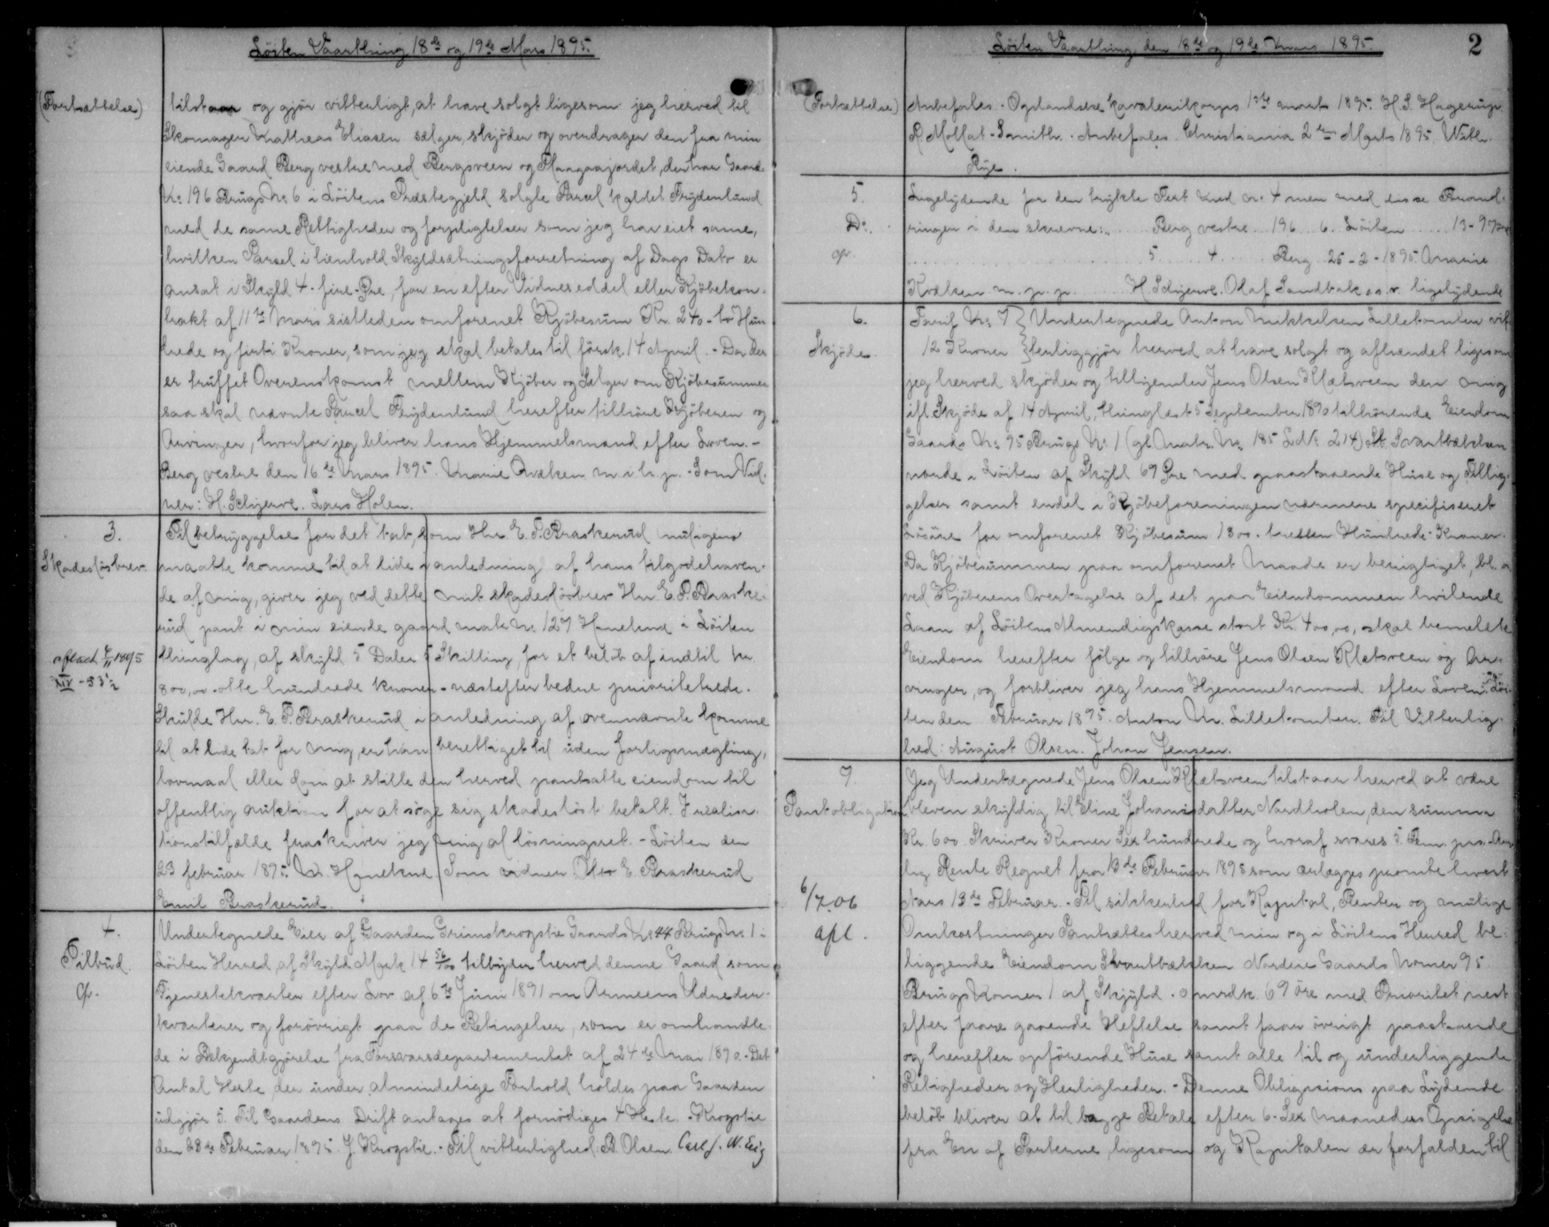 Löiten Vaarthing 18de og 19de Mars 1895.
(Fortsættelse)
tilstaar og gjör vitterligt, at have solgt ligesom jeg herved til
Skomager Matheas Eliasen sælger, skjöder og overdrager den fra min
eiende Gaard Berg vestre med Bergsveen og Flaugaajordet, den har Gaards
No 196 Brugs No 6 i Löitens Præstegjeld solgte Parcel kaldet Frydenlund
med de samme Rettigheder og forpligtelser som jeg har eiet samme,
hvilken Parsel i henhold Skyldsætningsforretning af Dags Dato er
ansat i Skyld 4 - fire - Öre, for en efter Vidneseddel eller Kjöbekon-
trakt af 11te Mars sistleden omforenet Kjöbesum Kr. 240 - to Hun-
drede og firti Kroner, som jeg skal betales til förstk. 14 April. - Da der
er truffet Overenskomst mellem Kjöber og Sælger om Kjöbesummen
saa skal nævnte Parcel Frydenlund herefter tilhöre Kjöberen og
Arvinger, hvorfor jeg bliver hans Hjemmelsmand efter Loven. -
Berg vestre den 16de Mars 1895. Marie Kvæken m. i h. p. - Som Vid-
ner: H. Schjerve. Lars Holen.
3.
Skadeslösbrev
aflæst 4/11 1895
XIV - 53½
Til betryggelse for det tab, som Hr. E. P. Braskerud muligens
maatte komme til at lide i anledning af hans tilgodehaven-
de af mig, giver jeg ved dette mit skadeslösbrev Hr. E. P. Braske-
rud pant i min eiende gaard matr. No. 127 Hanekne i Löiten
thinglag, af skyld 5 Daler 5 Skilling, for et belöb af indtil kr.
800,00 - otte hundrede kroner - næstefter bedre prioriterede.
Skulde Hr. E. P. Braskerud i anledning af ovennævnte komme
til at lide tab for mig, er han berettiget til uden forligsmægling,
lovmaal eller dom at stille den herved pantsatte eiendom til
offentlig auktion for at söge sig skadeslöst betalt. I realisa-
tionstilfælde fraskriver jeg mig al lösningsret. - Löiten den
23 februar 1895. M. Hanekne Som vidner Olov E. Braskerud
Emil Braskerud.
4.
Tilbud.
Undertegnede Eier af Gaarden Grimskrogstie Gaards No. 44 Brugs No. 1 i
Löiten Herred, af Skyld Mark 14 tilbyder herved denne Gaard som
Tjenestekvarter efter Lov af 6te Juni 1891 om Armeens Udreder-
kvarterer og forövrigt paa de Betingelser, som er omhandle-
de i Bekjendtgjörelse fra Forsvarsdepartementet af 24de Mai 1892. - Det
Antal Heste der under almindelige Forhold holdes paa Gaarden
udgjör 5. Til Gaardens Drift antages at fornödiges 4 Heste. Krogstie
den 28de Februar 1895. J. Krogstie. - Til vitterlighed: B. Olsen.
Löiten Vaarthing den 18de og 19de Mars 1895
2
(Fortsættelse)
Anbefales. Oplandske Kavalerikorps 1ste marts 1895 H. S. Hagerup.
R. Moffat-Smith. Anbefales. Christiania 2den Marts 1895, Wilh.
Rye.
5.
Do.
Ligelydende for den trykte Text med No. 4 men med disse Forand-
ringer i den skrevne: Berg vestre 196 6. Löiten 13 - 9 Öre
5 4 Berg 25-2-1895 Marie
Kvæken m. p. p. H. Schjerve. Olaf Sandbak o.s.v. ligelydende
6.
Skjöde.
Tarif No. 7 } Undertegnede Anton Mikkelsen Lilletomten vit-
12 Kroner } terliggjör herved at have solgt og afhændet ligesom
jeg herved skjöder og tilligemeder Jens Olsen Klætsveen den mig
ifl. Skjöde af 14 April, thinglæst 5 September 1890 tilhörende Eiendom
Gaards No. 95 Brugs No. 1 (gl. Matr. No. 185 L. No. 214) St. Svartbækken
nordre i Löiten af Skyld 69 Öre med paastaaende Huse og Tillig-
gelser samt endel i Kjöbeforeningen nærmere specifiseret
Lösöre for omforenet Kjöbesum 1300. tretten Hundrede Kroner.
Da Kjöbesummen paa omforenet Maade er berigtiget, bl. a.
ved Kjöberens Overtagelse af det paa Eiendommen hvilende
Laan af Löitens Almendigskasse stort Kr. 400,00, skal bemeldte
Eiendom herefter fölge og tilhöre Jens Olsen Klætsveen og Ar-
vinger, og forbliver jeg hans Hjemmelsmand efter Loven. Löi-
ten den Februar 1895. Anton M. Lilletomten. Til Vitterlig-
hed: August Olsen. Johan Jensen.
7
Pantobligation
6/7.06
apl.
Jeg Undertegnede Jens Olsen Klætsveen tilstaar herved at være
bleven skyldig til Eline Johannisdatter Nordholen, den summa
Kr. 600 Skriver Kroner Sex hundrede og hvoraf svares 5 Fem pro. Aar-
lig Rente Regnet fra 13de Februar 1895 som erlægges promte hvert
Aars 13de Februar. - Til sikkerhed for Kapital, Renter og mulige
Omkostninger Pantsættes herved min og i Löitens Herred be-
liggende Eiendom Svartbækken Nordre Gaards Nomer 95
Brugs Nomer 1 af Skyld. 0 mrk. 69 öre med Prioritet næst
efter foregaaende Heftelse samt faar övrigt paastaaende
og herefter opförende Huse samt alle til og underliggende
Retigheder og Herligheder. - Denne Obligasions paa Lydende
belöb bliver at tilbage Betale efter 6 - Sex Maaneders Opsigelse
fra En af Parterne, ligesom og Kapitalen er forfalden til